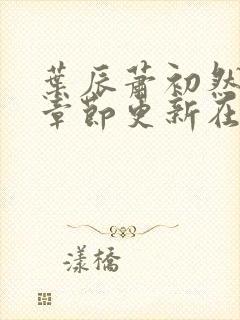 葉辰蕭初然
章節更新在
漾橋